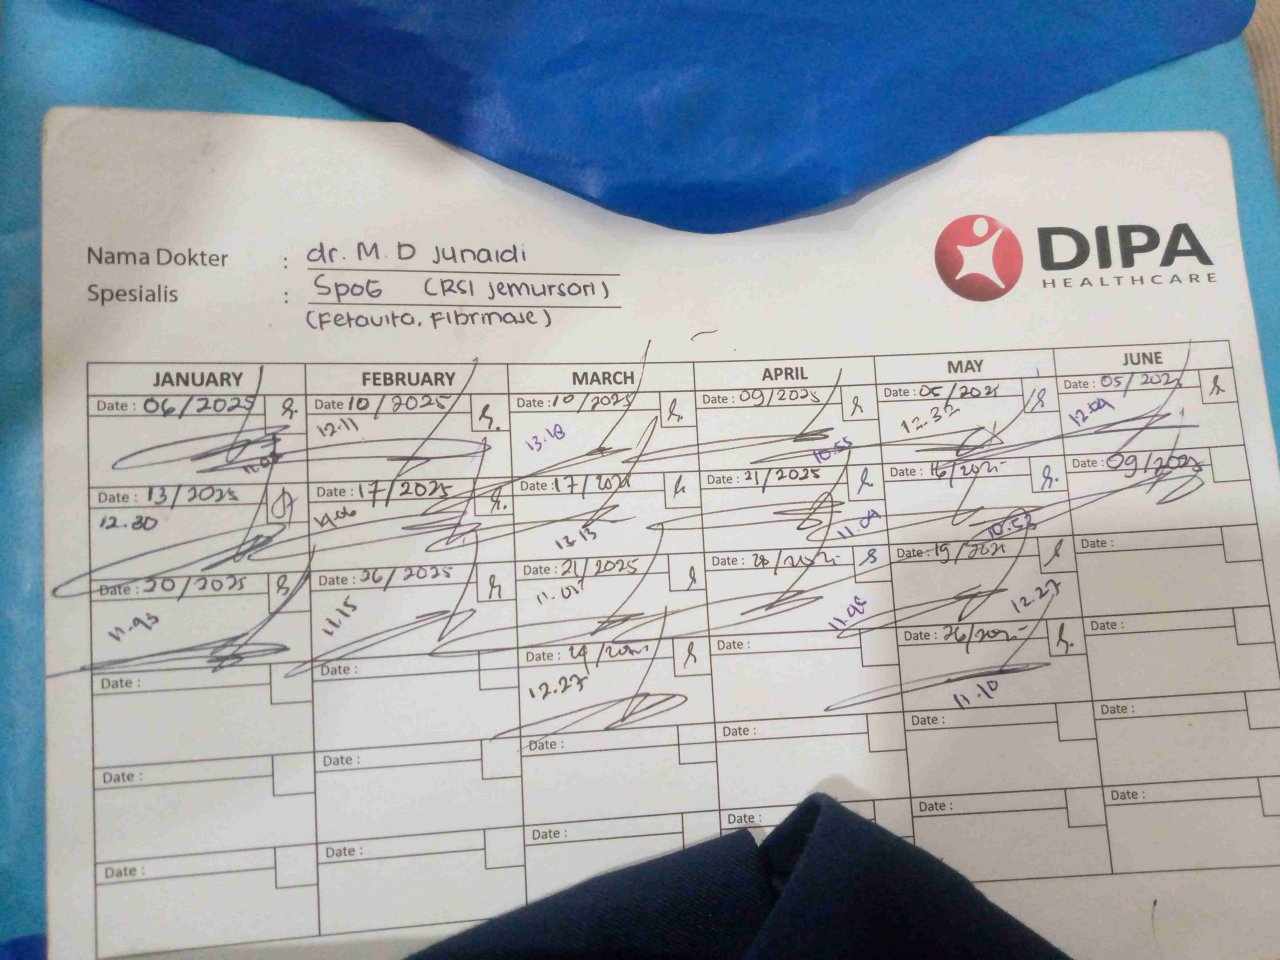 DIPA
HEALTHCARE
Nama Dokter : dr. M. D Junaidi
Spesialis : SpoG (RSI Jemursari)
(Fetavita, Fibrinase)
JANUARY FEBRUARY MARCH APRIL MAY JUNE
Date : 06/2025 Date : 10/2025 Date : 10/2025 Date : 09/2025 Date : 05/2025 Date : 05/2025
12.11 13.18 10.55 12.32 12.09
Date : 13/2025 Date : 17/2025 Date : 17/2025 Date : 21/2025 Date : 16/2025 Date : 09/2025
12.30 13.13 11.09 10.53
Date : 20/2025 Date : 26/2025 Date : 21/2025 Date : 28/2025 Date : 19/2025 Date :
11.15 12.27
Date : Date : Date : 24/2025 Date : Date : 26/2025 Date :
12.27 11.10
Date : Date : Date : Date : Date : Date :
Date : Date : Date : Date : Date : Date :